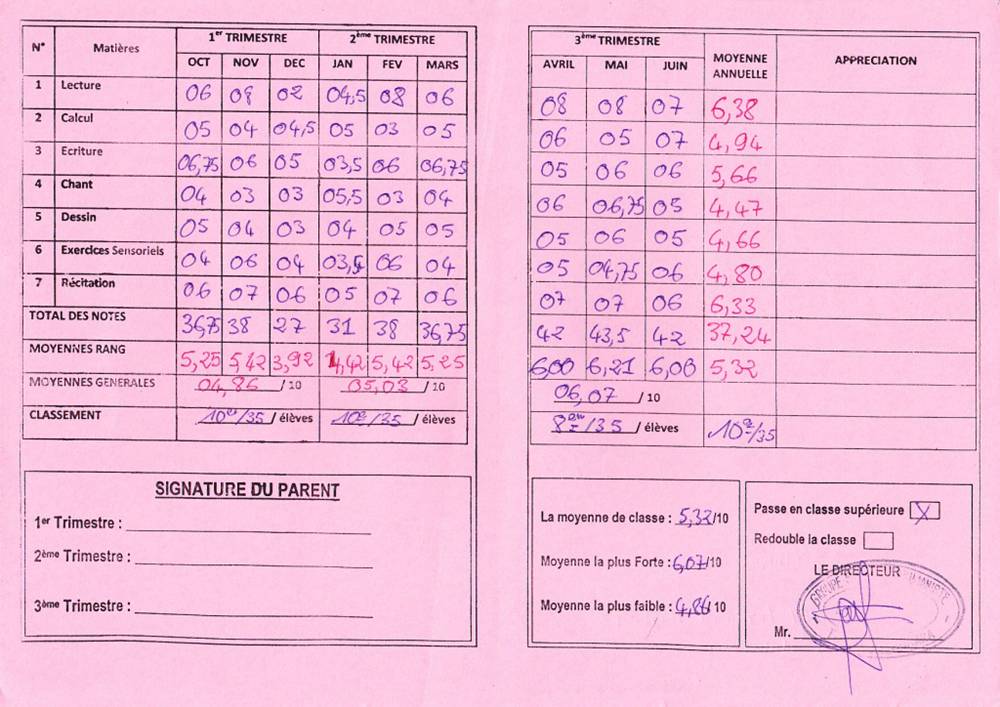 N° Matières 1er TRIMESTRE 2ème TRIMESTRE
OCT NOV DEC JAN FEV MARS
1 Lecture 06 08 02 04,5 08 06
2 Calcul 05 04 04,5 05 03 05
3 Ecriture 06,75 06 05 03,5 06 06,75
4 Chant 04 03 03 05,5 03 04
5 Dessin 05 04 03 04 05 05
6 Exercices Sensoriels 04 06 04 03,5 06 04
7 Récitation 06 07 06 05 07 06
TOTAL DES NOTES 36,75 38 27 31 38 36,75
MOYENNES RANG 5,25 5,42 3,92 4,42 5,42 5,25
MOYENNES GENERALES 04,86 / 10 05,03 / 10
CLASSEMENT 10e/35 / élèves 10e/35 / élèves
SIGNATURE DU PARENT
1er Trimestre :
2ème Trimestre :
3ème Trimestre :
3ème TRIMESTRE MOYENNE ANNUELLE APPRECIATION
AVRIL MAI JUIN
08 08 07 6,38
06 05 07 4,94
05 06 06 5,66
06 06,75 05 4,47
05 06 05 4,66
05 04,75 06 4,80
07 07 06 6,33
42 43,5 42 37,24
6,00 6,21 6,00 5,32
06,07 / 10
8em/35 / élèves 10e/35
La moyenne de classe : 5,32/10
Moyenne la plus Forte : 6,07/10
Moyenne la plus faible : 4,86/10
Passe en classe supérieure X
Redouble la classe
LE DIRECTEUR
GROUPE
Mr.